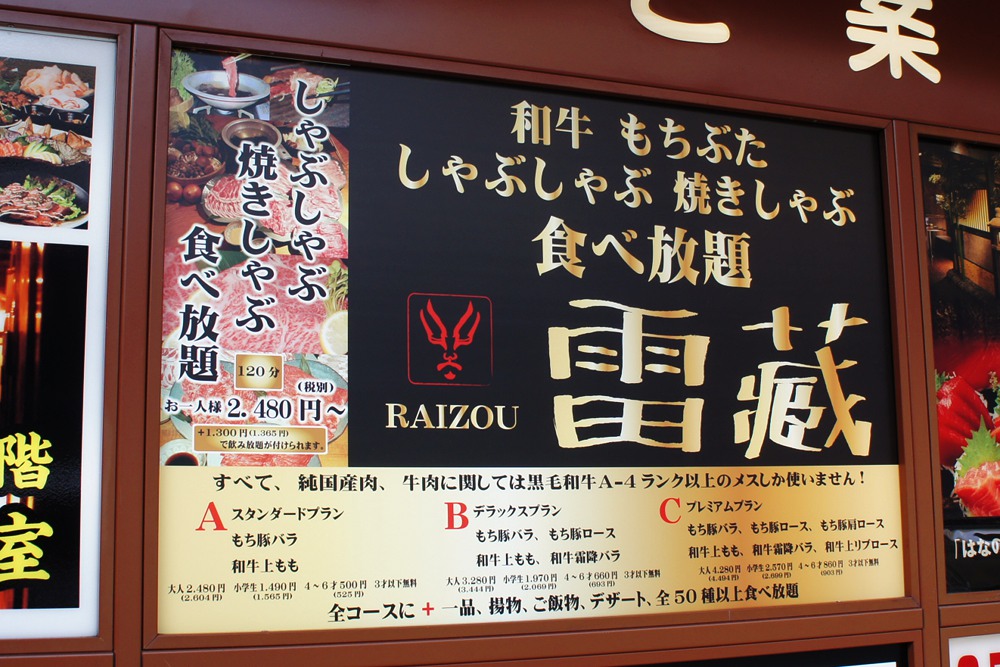 と 業
しゃぶしゃぶ
焼きしゃぶ
食べ放題
120分
(税別)
お一人様 2.480円～
+1.300円(1.365円)
で飲み放題が付けられます。
和牛 もちぶた
しゃぶしゃぶ 焼きしゃぶ
食べ放題
RAIZOU
雷藏
すべて、純国産肉、牛肉に関しては黒毛和牛A-4ランク以上のメスしか使いません！
A スタンダードプラン
もち豚バラ
和牛上もも
大人2.480円 小学生1.490円 4～6才500円 3才以下無料
(2.604円) (1.565円) (525円)
B デラックスプラン
もち豚バラ、もち豚ロース
和牛上もも、和牛霜降バラ
大人3.280円 小学生1.970円 4～6才660円 3才以下無料
(3.444円) (2.069円) (693円)
C プレミアムプラン
もち豚バラ、もち豚ロース、もち豚肩ロース
和牛上もも、和牛霜降バラ、和牛上リブロース
大人4.280円 小学生2.570円 4～6才860円 3才以下無料
(4.494円) (2.699円) (903円)
全コースに + 一品、揚物、ご飯物、デザート、全50種以上食べ放題
階
室
「はなの